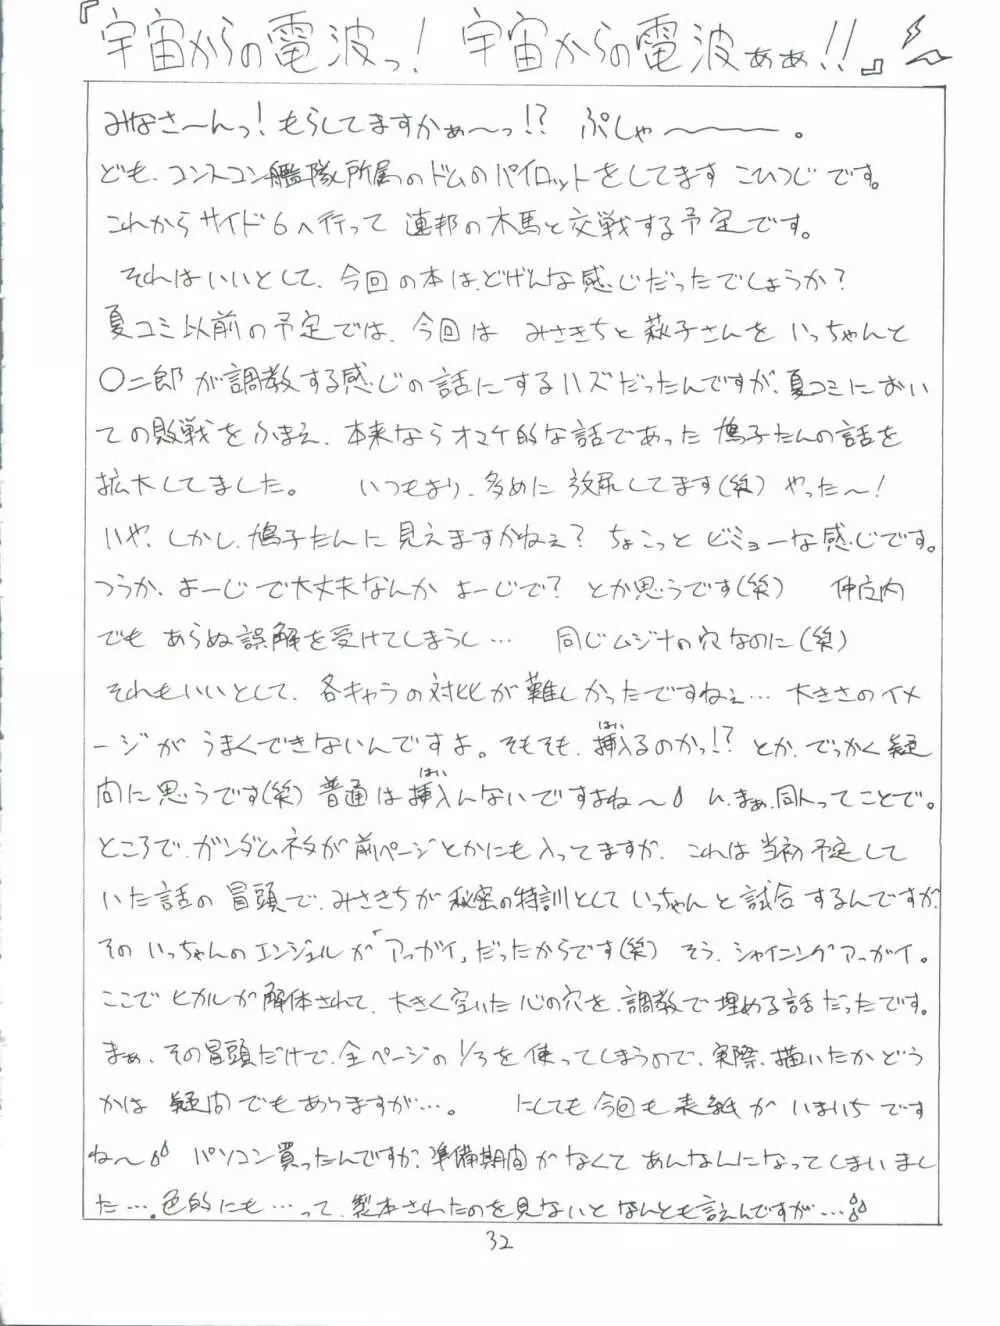 『宇宙からの電波っ! 宇宙からの電波ぁぁ!!』
みなさーんっ!もらしてますかぁ〜っ!? ぷしゃ〜〜。
ども、コンスコン艦隊所属のドムのパイロットをしてます こひつじです。
これからサイド6へ行って 連邦の木馬と交戦する予定です。
それはいいとして、今回の本は、どげんな感じだったでしょうか?
夏コミ以前の予定では、今回は みさきちと萩子さんを いっちゃんと
〇二郎が調教する感じの話にするハズだったんですが、夏コミにおい
ての敗戦をふまえ、本来ならオマケ的な話であった 鳩子たんの話を
拡大してました。 いつもより、多めに 放尿してます(笑) やった〜!
いや、しかし、鳩子たんに見えますかねぇ? ちょこっと ビミョーな感じです。
つうか、よーじで大丈夫なんか よーじで? とか思うです(笑) 仲間内
でも あらぬ誤解を受けてしまうし… 同じムジナの穴なのに(笑)
それもいいとして、各キャラの対比が難しかったですねぇ… 大きさのイメ
ージが うまくできないんですよ。そもそも、挿入るのかっ!? とか、でっかく疑
はい
問に思うです(笑) 普通は挿入んないですよね〜 ん、まぁ、同人ってことで。
はい
ところで、ガンダムネタが前ページとかにも入ってますが、これは当初予定して
いた話の冒頭で、みさきちが秘密の特訓としていっちゃんと試合するんですが、
そのいっちゃんのエンジェルが「アッガイ」だったからです(笑) そう、シャイニングアッガイ。
ここで ヒカルが解体されて、大きく空いた心の穴を、調教で埋める話だったです。
まぁ、その冒頭だけで、全ページの1/3を使ってしまうので、実際、描いたかどう
かは 疑問でもありますが…。 にしても今回も表紙がいまいちです
ね〜 パソコン買ったんですが、準備期間がなくて あんなんになってしまいまし
た…。色的にも…って、製本されたのを見ないとなんとも言えんですが…
32